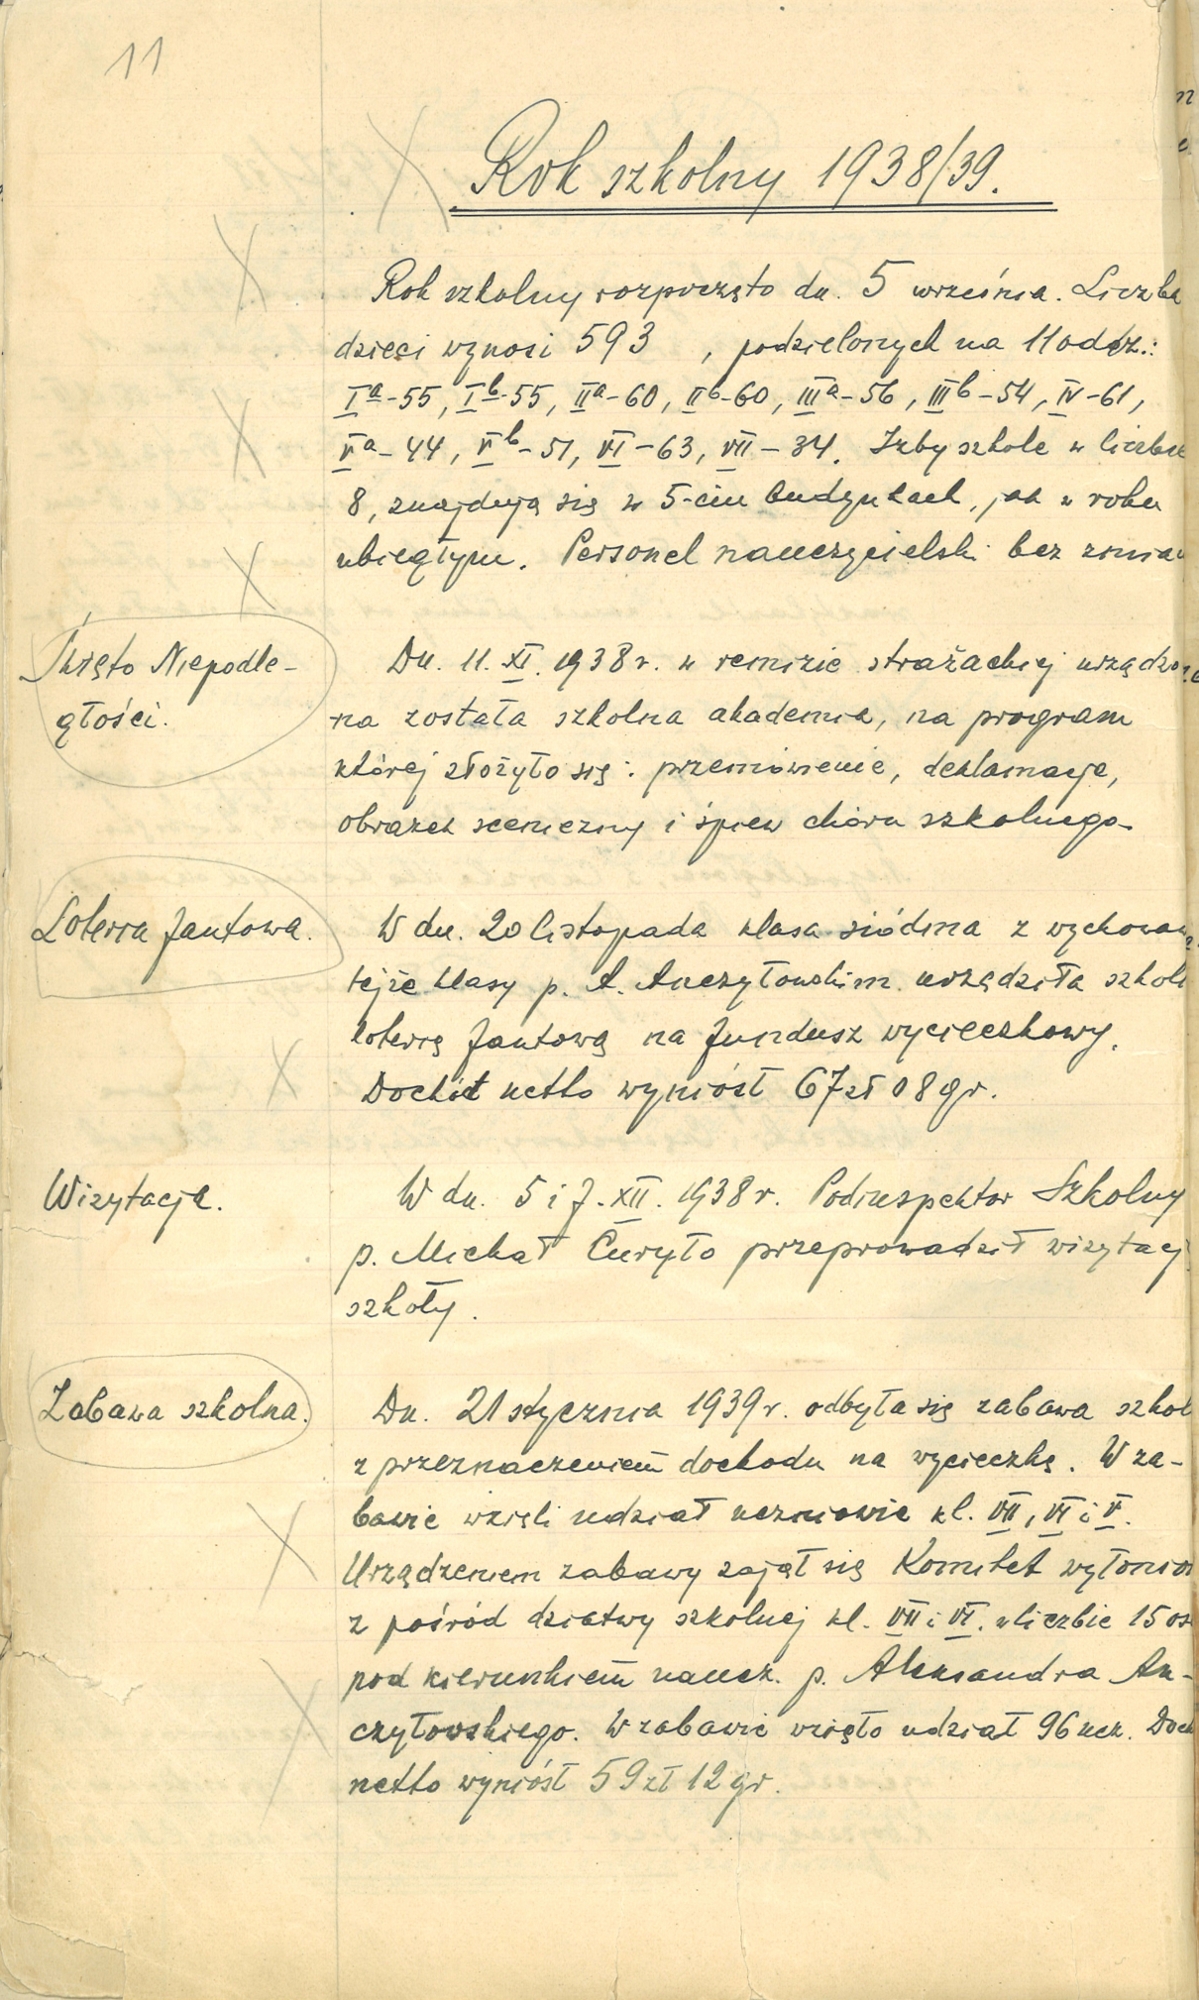 11
Rok szkolny 1938/39.
Rok szkolny rozpoczęto dn. 5 września. Liczba
dzieci wynosi 593 , podzielonych na 11 oddz.:
Iª-55, Iᵇ-55, IIª-60, IIᵇ-60, IIIª-56, IIIᵇ-54, IV-61,
Vª-44, Vᵇ-51, VI-63, VII-34. Izby szkole w liczbie
8, znajdują się w 5-ciu budynkach, jak w roku
ubiegłym. Personel nauczycielski bez zmian
Święto Niepodle-
głości.
Dn. 11. XI. 1938 r. w remizie strażackiej urządzo
na została szkolna akademia, na program
której złożyło się: przemówienie, deklamacje,
obrazek sceniczny i śpiew chóru szkolnego
Loteria fantowa.
W dn. 20 listopada klasa siódma z wychowaw
tejże klasy p. A. Anczytowskim urządziła szkol
loterię fantową na fundusz wycieczkowy.
Dochód netto wyniósł 67 zł 08 gr.
Wizytacja.
W dn. 5 i 7. XII. 1938 r. Podinspektor Szkolny
p. Michał Curyło przeprowadził wizytacj
szkoły.
Zabawa szkolna.
Dn. 21 stycznia 1939 r. odbyła się zabawa szkol
z przeznaczeniem dochodu na wycieczkę. W za-
bawie wzięli udział uczniowie kl. VII, VI i V.
Urządzeniem zabawy zajął się Komitet wyłonion
z pośród dziatwy szkolnej kl. VII i VI. w liczbie 15 os
pod kierunkiem naucz. p. Aleksandra An-
czytowskiego. W zabawie wzięło udział 96 ucz. Doch
netto wyniósł 59 zł 12 gr.